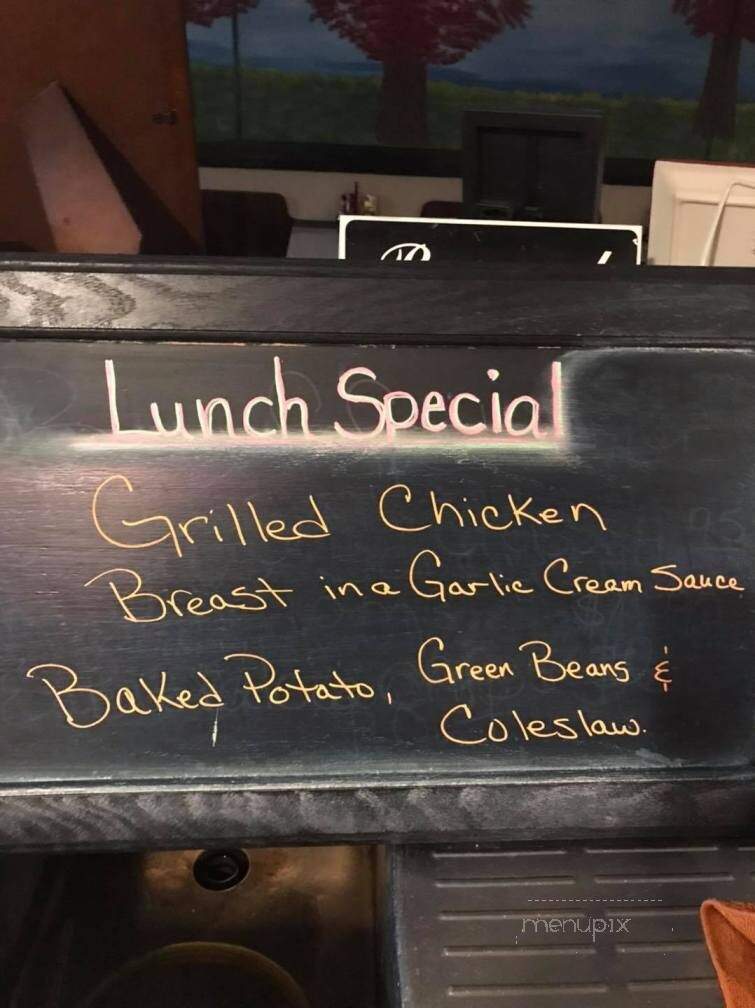 Lunch Special
Grilled Chicken
Breast in a Garlic Cream Sauce
Baked Potato, Green Beans &
Coleslaw.
menupix